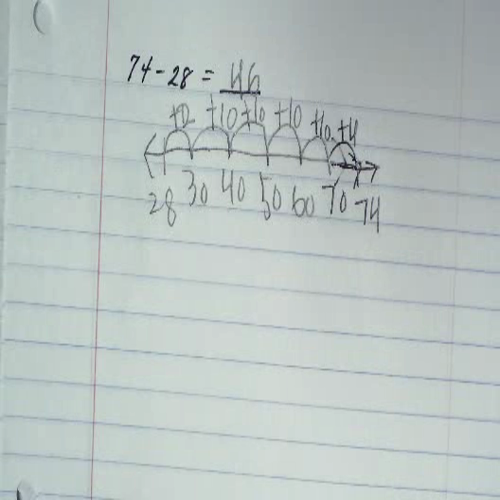 74 - 28 = 46
+2 +10 +10 +10 +10 +4
28 30 40 50 60 70 74